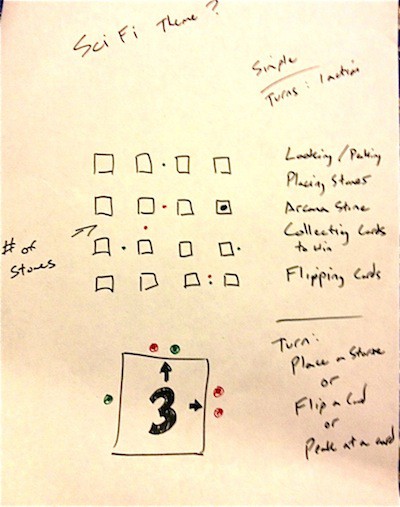 Sci Fi Theme?
Simple
Turns: 1 action
Looking / Peeking
Placing Stones
Arcana Stone
Collecting Cards
to win
# of
Stones
Flipping Cards
Turn:
Place a Stone
or
Flip a Card
or
Peak at a card
3